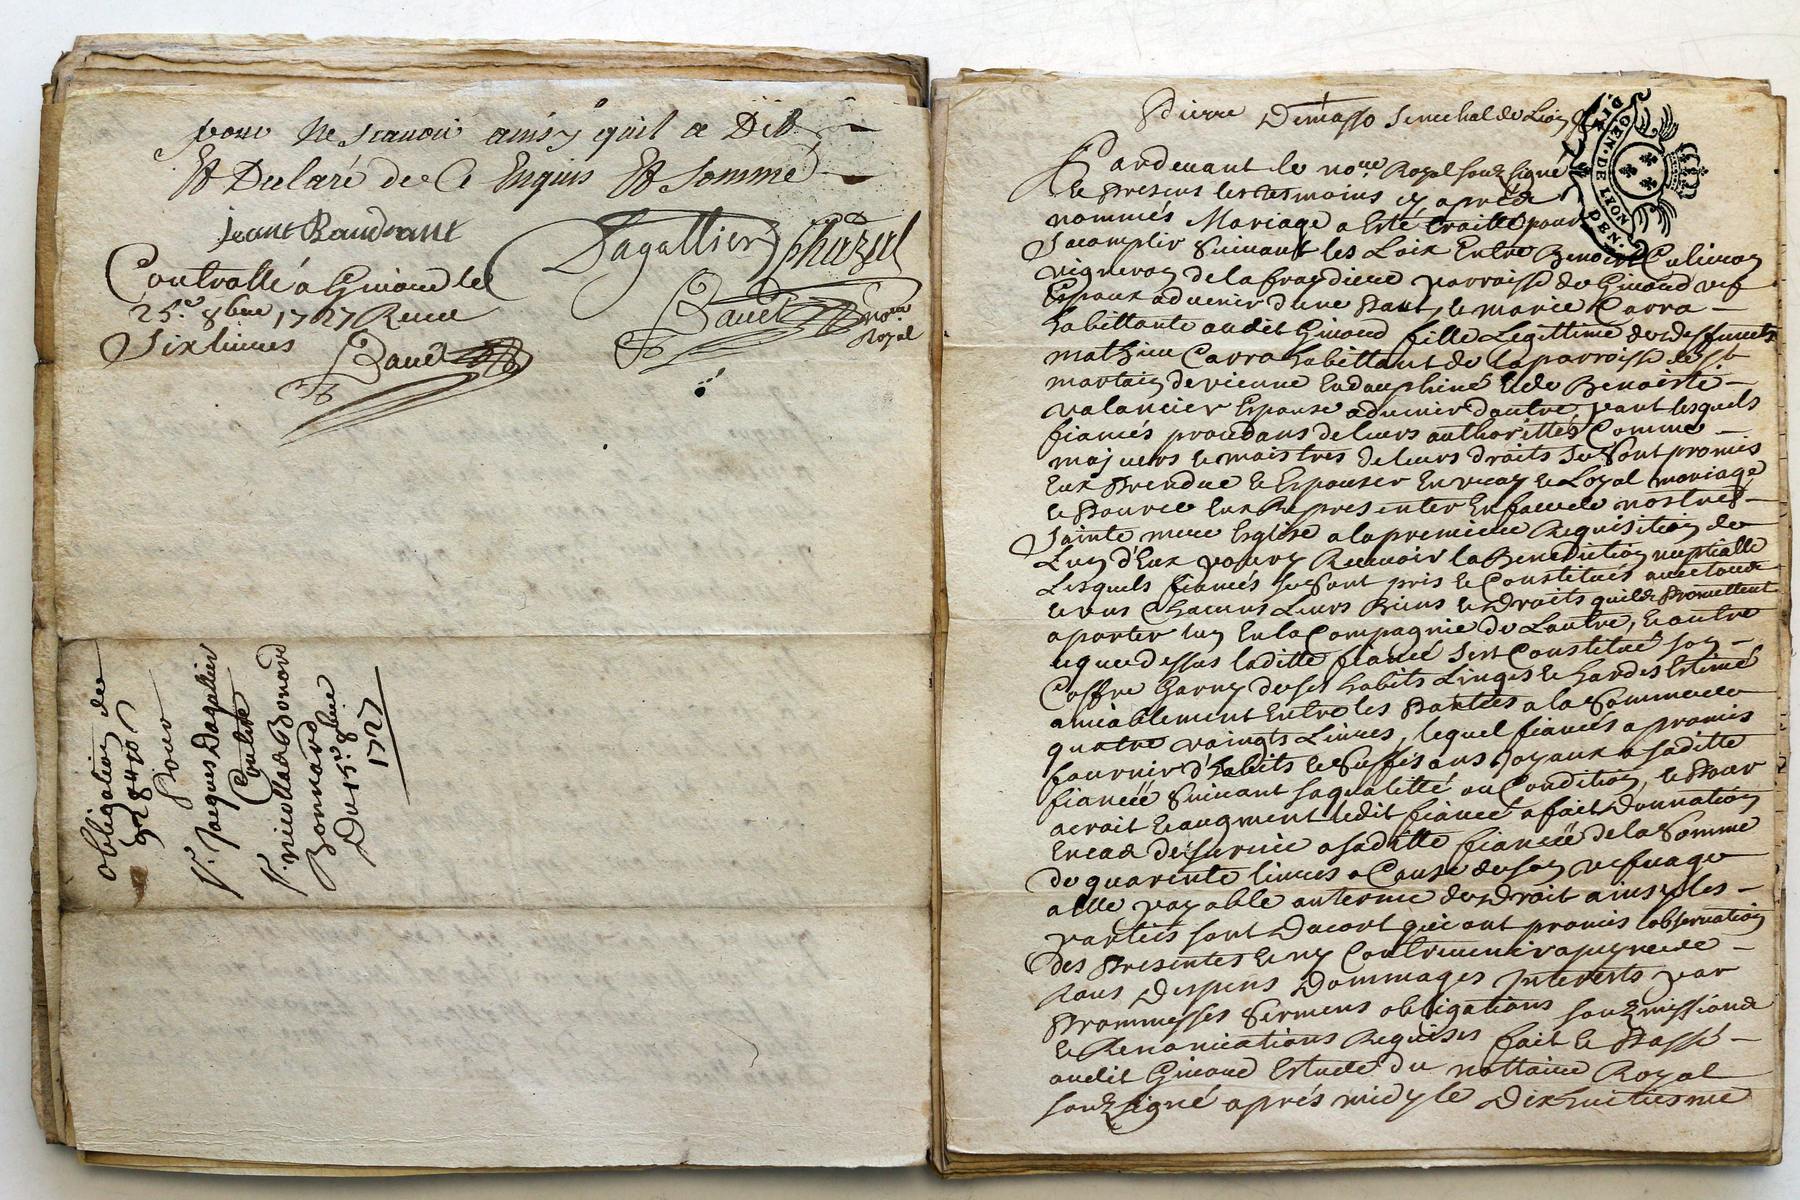 pour ne scavoir ainsy quil a Dit
Et Declaré de Ce Enquis Et sommé
jeant Baudrant
Dagallier
Chazal
Controllé a Givord le
25.e 8bre 1727 Receu
Six livres
Baud
Baud
no.re
Royal
obligation de
928
Pour
Sr. Jacques Dagalier
Contre
Sr. nicollas Bonard
Bonnard
Du 15e 8bre
1727
Pierre Demasso Senechal de Lion
GEN. DE LYON
DEN.
Pardevant le no.re Royal souzsigné
Et Presens les tesmoins cy apres
nommés Mariage a Esté traitté pour
Sacomplir Suivant les Loix Entre Benoist
vigneron de la parroisse de Givord
Espoux advenir dune Part, Et marie Carra
habittante audit Givord fille Legittime de deffunts
mathieu Carra habittant de la parroisse de St
martain de vienne En dauphiné Et de Benoiste
valancier Espouse advenir dautre part lesquels
fiancés procedans de leurs authorittés Comme
majeurs Et maistres de leurs droits se Sont promis
Eux Prendre Et Espouser En vray Et Loyal mariage
Et Pour ce Eux Representer En face de nostre
Sainte mere Esglise a la premiere Requisition de
Lun d'Eux pour y Recevoir la Benediction nuptialle
Lesquels fiancés se Sont pris Et Constitués avec tous
Et uns Chacuns Leurs Biens Et Droits quils Promettent
aporter lun En la Compagnie de Lautre, Et outre
ce que dessus laditte fiancée sest Constitué son
Coffre Garny de ses habits Linges Et hardes Estimé
amiablement Entre les Parties a la Somme de
quatre vaingts Livres, lequel fiancé a promis
fournir d'habits Et Suffisans Joyaux a saditte
fiancée Suivant sa qualitté ou Condition, Et Pour
acroit Et augment ledit fiancé a fait Donnation
En cas de survie a saditte fiancée de la Somme
de quarente livres a Cause de son vefvage
a Elle payable au terme de Droit ainsy les
parties sont Dacort qui ont promis lobservation
des Presentes Et ny Contrevenir a peyne de
tous Despens Dommages Interests par
Prommesses Sermens obligations souzmissions
Et Renonciations Requises fait Et Passé
audit Givord Estude du nottaire Royal
souzsigné aprés midy le Dixhuitiesme